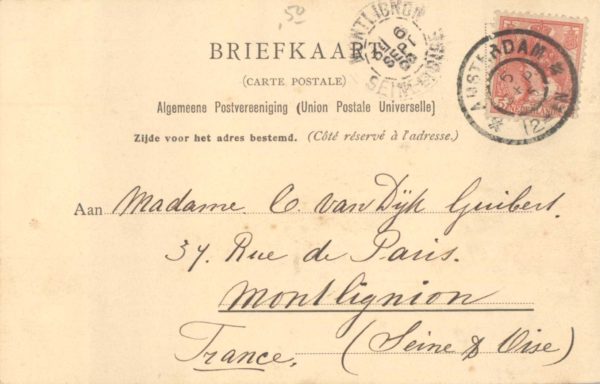 ,50
BRIEFKAART
(CARTE POSTALE)
Algemeene Postvereeniging (Union Postale Universelle)
Zijde voor het adres bestemd. (Côté réservé à l'adresse.)
MONTLIGNON
SEINE
AMSTERDAM
Aan Madame. C. van Dÿk Guibert.
37. Rue de Paris.
Montlignion
(Seine & Oise)
France.